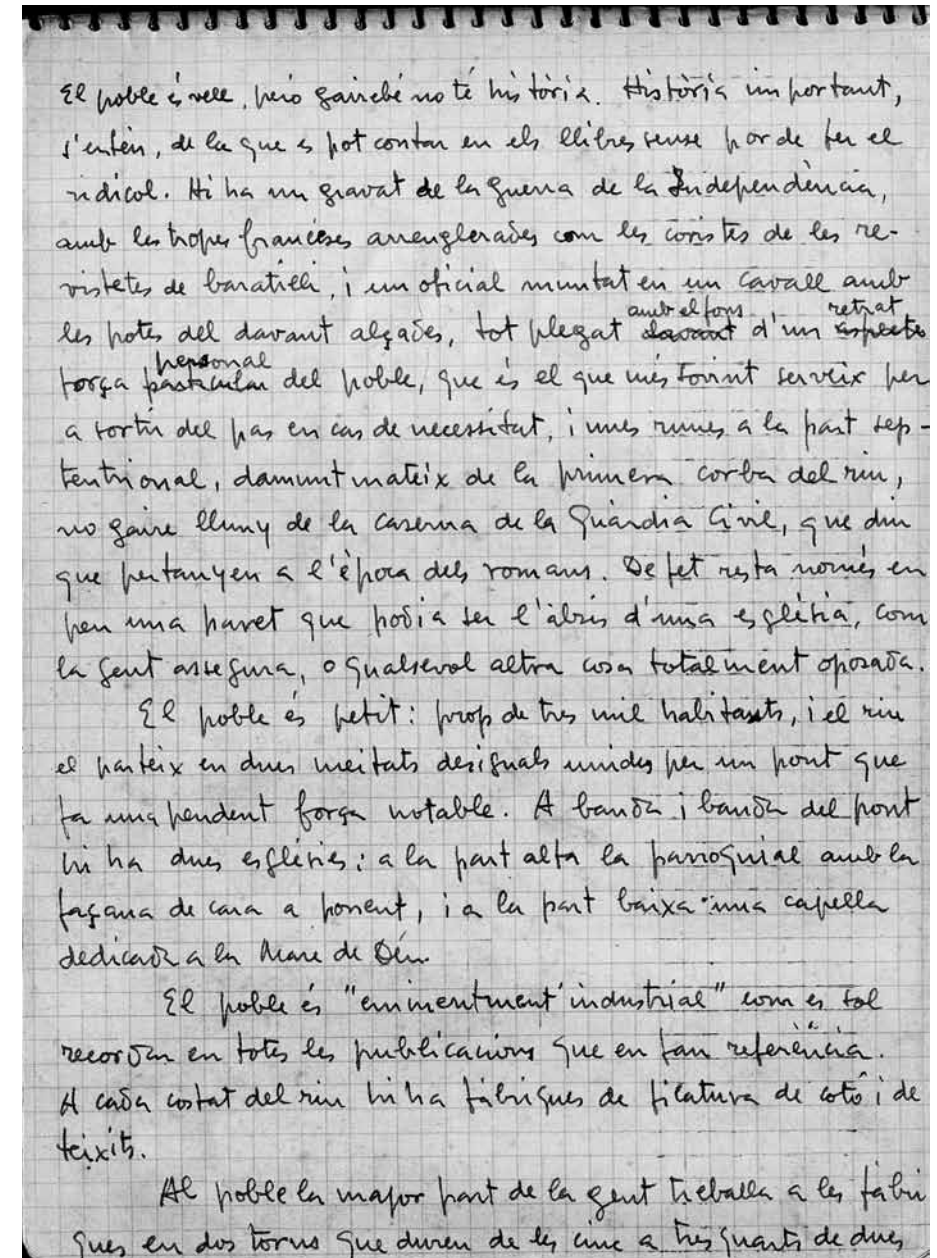 El poble és vell, però gairebé no té història. Història important,
s'entén, de la que es pot contar en els llibres sense por de fer el
ridícol. Hi ha un gravat de la guerra de la Independència,
amb les tropes franceses arrenglerades com les coristes de les re-
vistetes de baratilli, i un oficial muntat en un cavall amb
amb el fons retrat
les potes del davant alçades, tot plegat davant d'un aspecte
personal
força particular del poble, que és el que més sovint serveix per
a sortir del pas en cas de necessitat, i unes runes a la part sep-
tentrional, damunt mateix de la primera corba del riu,
no gaire lluny de la caserna de la Guàrdia Civil, que diu
que pertanyen a l'època dels romans. De fet resta només en
peu una paret que podia ser l'absis d'una església, com
la gent assegura, o qualsevol altra cosa totalment oposada.
El poble és petit: prop de tres mil habitants, i el riu
el parteix en dues meitats desiguals unides per un pont que
fa una pendent força notable. A banda i banda del pont
hi ha dues esglésies: a la part alta la parroquial amb la
façana de cara a ponent, i a la part baixa una capella
dedicada a la Mare de Déu.
El poble és "eminentment industrial" com es sol
recordar en totes les publicacions que en fan referència.
A cada costat del riu hi ha fàbriques de filatura de cotó i de
teixits.
Al poble la major part de la gent treballa a les fàbri
ques en dos torns que duren de les cinc a tres quarts de dues